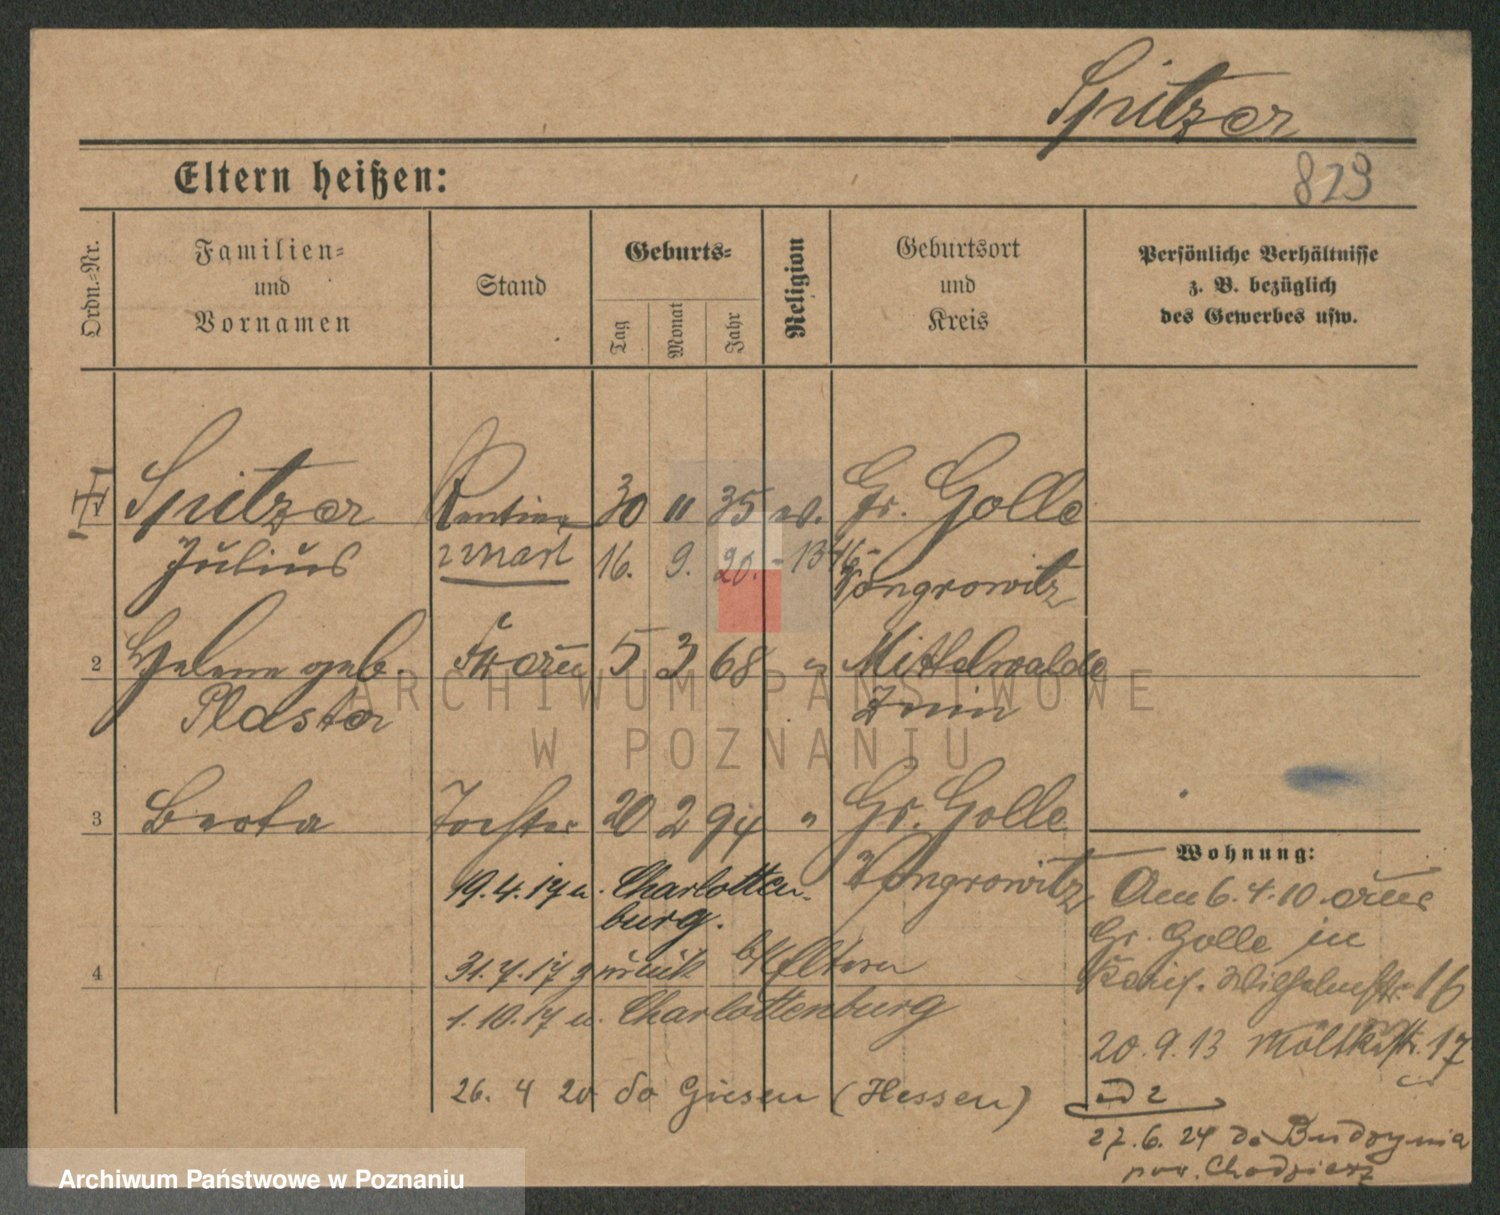 Spitzer
Eltern heißen:
823
Ordn.=Nr.
Familien=
und
Vornamen
Stand
Geburts=
Tag
Monat
Jahr
Religion
Geburtsort
und
Kreis
Persönliche Verhältnisse
z. B. bezüglich
des Gewerbes usw.
Spitzer Rentier 30 11 35 ev. Gr. Golle
Julius zmarł 16. 9. 20. Wongrowitz
2 Helene geb. Frau 5 3 68 " Mittelwalde
Plaster Znin
3 Berta Tochter 20 2 94 " Gr. Golle
Wongrowitz
Wohnung:
19.4.17 n. Charlotten-
burg.
31.7.17 zurück Eltern
4
1.10.17 n. Charlottenburg
26. 4 20 do Giesen (Hessen)
Am 6.4.10. aus
Gr. Golle in
Wilhelmstr. 16
20.9.13 Moltkestr. 17
27.6.24 do Budzynia
pow. Chodzież
ARCHIWUM PAŃSTWOWE
W POZNANIU
Archiwum Państwowe w Poznaniu